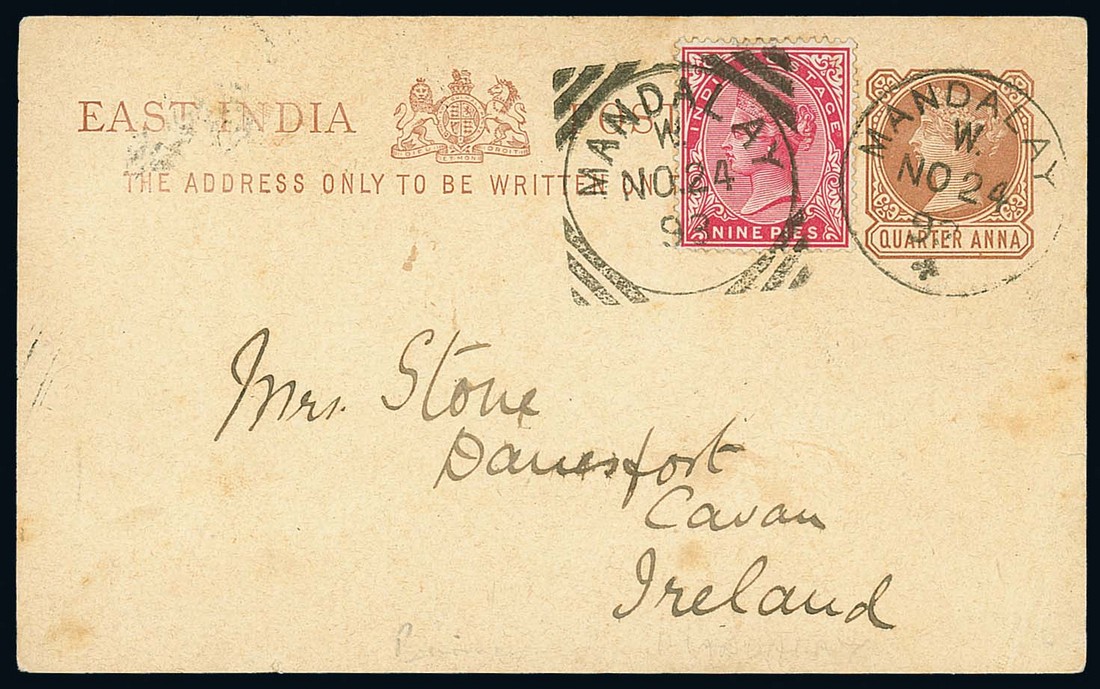 EAST INDIA POST
DIEU ET MON DROIT
THE ADDRESS ONLY TO BE WRITTEN
MANDALAY
W.
NO 24
INDIA POSTAGE
NINE PIES
MANDALAY
W.
NO 24
QUARTER ANNA
Mrs. Stone
Danesfort
Cavan
Ireland